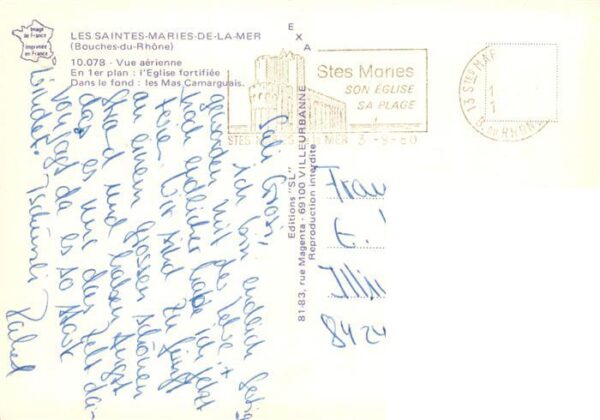 Image de France
Imprimée en France
LES SAINTES-MARIES-DE-LA-MER
(Bouches-du-Rhône)
10.078 - Vue aérienne
En 1er plan : l'Eglise fortifiée
Dans le fond : les Mas Camarguais.
EXA
Stes Maries
SON ÉGLISE
SA PLAGE
STES MER 3-9-80
13 STES MAR
B. DU RHÔNE
Editions "SL"
81-83, rue Magenta - 69100 VILLEURBANNE
Reproduction interdite
Sali Grosi,
ich bin endlich fertig
geworden mit der Lehre. +
habe ich jetzt
Wir sind zu fünft
an einem grossen schönen
Strand und haben Angst
das es uns das Zelt da-
vonjagt da es so stark
windet. Tschüssli
Rahel
Frau
E.
Illn
8424